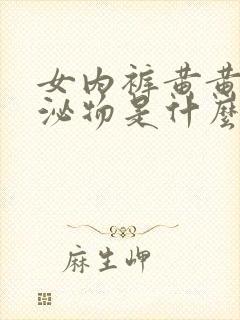 女内裤黄黄
泌物是什麼
麻生岬